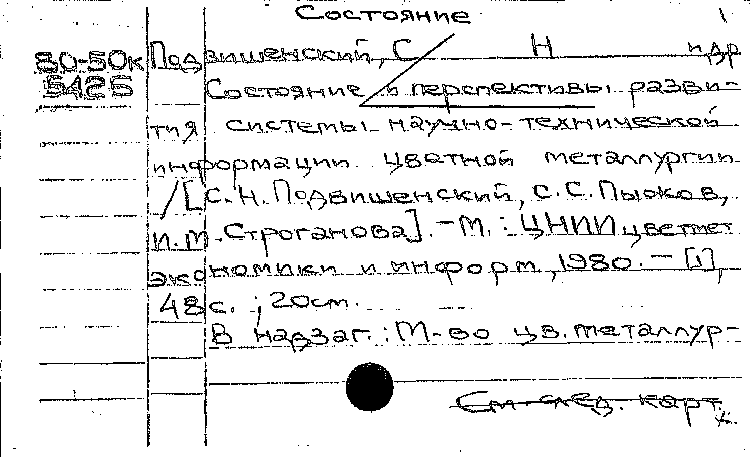 Состояние 1
80-50к Подвишенский, С Н и др
5425 Состояние и перспективы разви-
тия системы научно-технической
информации цветной металлургии
/[С.Н. Подвишенский, С.С. Пыжов,
И.М. Строганова]. - М. : ЦНИИ цветмет
экономики и информ, 1980. - [1],
48 с. ; 20 см.
В надзаг.: М-во цв. металлур-
См. след. карт.